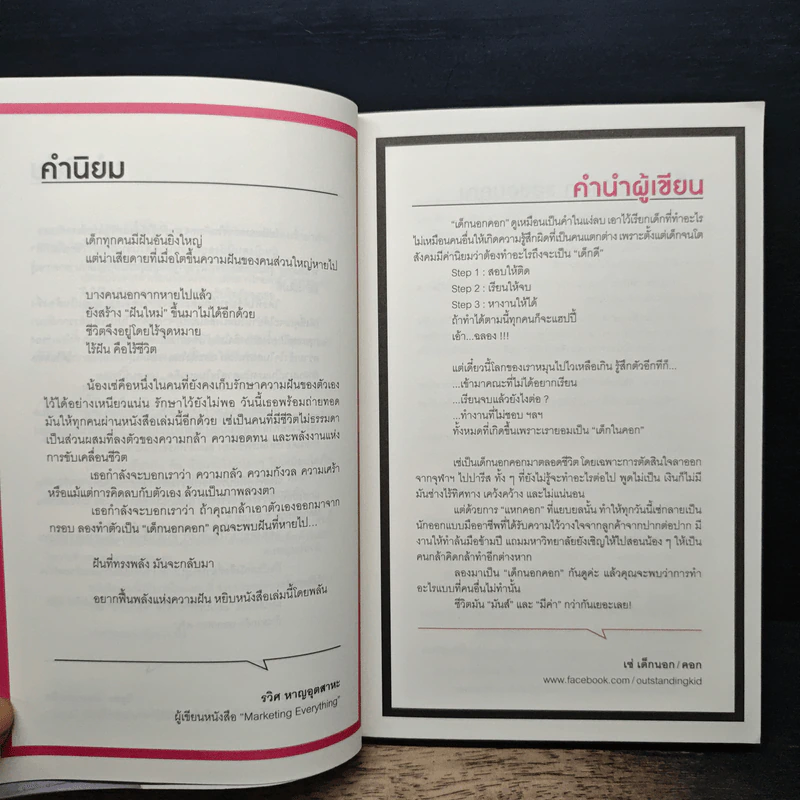 คำนิยม
เด็กทุกคนมีฝันอันยิ่งใหญ่
แต่น่าเสียดายที่เมื่อโตขึ้นความฝันของคนส่วนใหญ่หายไป
บางคนนอกจากหายไปแล้ว
ยังสร้าง "ฝันใหม่" ขึ้นมาไม่ได้อีกด้วย
ชีวิตจึงอยู่โดยไร้จุดหมาย
ไร้ฝัน คือไร้ชีวิต
น้องเซ่คือหนึ่งในคนที่ยังคงเก็บรักษาความฝันของตัวเอง
ไว้ได้อย่างเหนียวแน่น รักษาไว้ยังไม่พอ วันนี้เธอพร้อมถ่ายทอด
มันให้ทุกคนผ่านหนังสือเล่มนี้อีกด้วย เซ่เป็นคนที่มีชีวิตไม่ธรรมดา
เป็นส่วนผสมที่ลงตัวของความกล้า ความอดทน และพลังงานแห่ง
การขับเคลื่อนชีวิต
เธอกำลังจะบอกเราว่า ความกลัว ความกังวล ความเศร้า
หรือแม้แต่การคิดลบกับตัวเอง ล้วนเป็นภาพลวงตา
เธอกำลังจะบอกเราว่า ถ้าคุณกล้าเอาตัวเองออกมาจาก
กรอบ ลองทำตัวเป็น "เด็กนอกคอก" คุณจะพบฝันที่หายไป...
ฝันที่ทรงพลัง มันจะกลับมา
อยากฟื้นพลังแห่งความฝัน หยิบหนังสือเล่มนี้โดยพลัน
รวิศ หาญอุตสาหะ
ผู้เขียนหนังสือ "Marketing Everything"
คำนำผู้เขียน
"เด็กนอกคอก" ดูเหมือนเป็นคำในแง่ลบ เอาไว้เรียกเด็กที่ทำอะไร
ไม่เหมือนคนอื่นให้เกิดความรู้สึกผิดที่เป็นคนแตกต่าง เพราะตั้งแต่เด็กจนโต
สังคมมีค่านิยมว่าต้องทำอะไรถึงจะเป็น "เด็กดี"
Step 1 : สอบให้ติด
Step 2 : เรียนให้จบ
Step 3 : หางานให้ได้
ถ้าทำได้ตามนี้ทุกคนก็จะแฮปปี้
เอ้า...ฉลอง !!!
แต่เดี๋ยวนี้โลกของเราหมุนไปไวเหลือเกิน รู้สึกตัวอีกทีก็...
...เข้ามาคณะที่ไม่ได้อยากเรียน
...เรียนจบแล้วยังไงต่อ ?
...ทำงานที่ไม่ชอบ ฯลฯ
ทั้งหมดที่เกิดขึ้นเพราะเรายอมเป็น "เด็กในคอก"
เซ่เป็นเด็กนอกคอกมาตลอดชีวิต โดยเฉพาะการตัดสินใจลาออก
จากจุฬาฯ ไปปารีส ทั้ง ๆ ที่ยังไม่รู้จะทำอะไรต่อไป พูดไม่เป็น เงินก็ไม่มี
มันช่างไร้ทิศทาง เคว้งคว้าง และไม่แน่นอน
แต่ด้วยการ "แหกคอก" ที่แยบยลนั้น ทำให้ทุกวันนี้เซ่กลายเป็น
นักออกแบบมืออาชีพที่ได้รับความไว้วางใจจากลูกค้าจากปากต่อปาก มี
งานให้ทำล้นมือข้ามปี แถมมหาวิทยาลัยยังเชิญให้ไปสอนน้อง ๆ ให้เป็น
คนกล้าคิดกล้าทำอีกต่างหาก
ลองมาเป็น "เด็กนอกคอก" กันดูค่ะ แล้วคุณจะพบว่าการทำ
อะไรแบบที่คนอื่นไม่ทำนั้น
ชีวิตมัน "มันส์" และ "มีค่า" กว่ากันเยอะเลย!
เซ่ เด็กนอก/คอก
www.facebook.com/outstandingkid